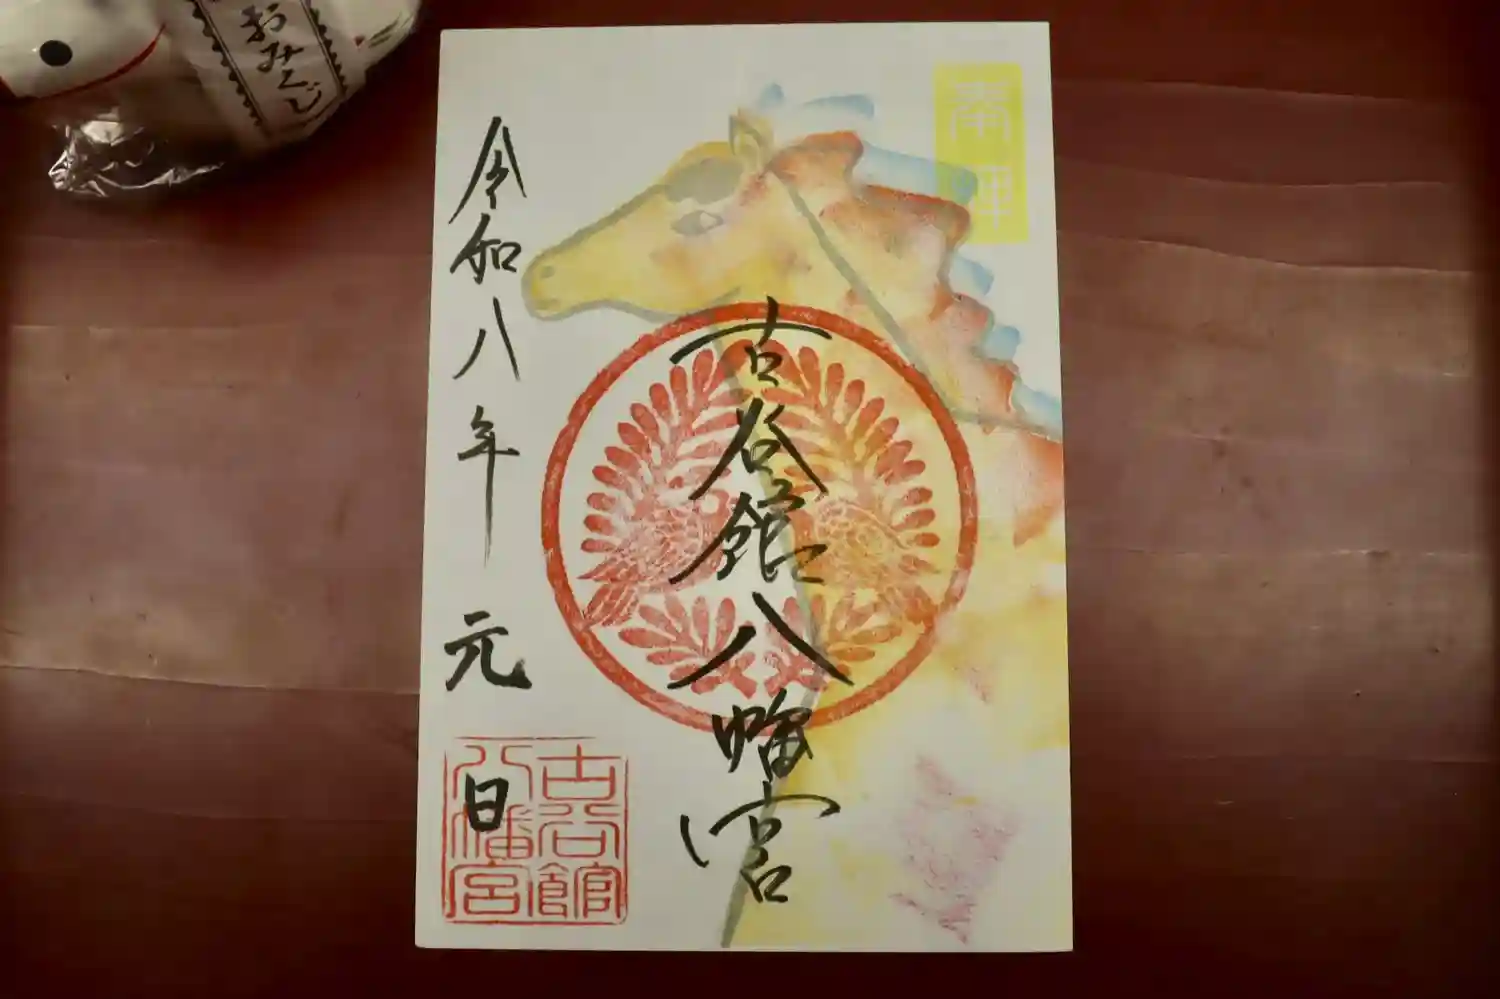 おみくじ
奉拝
古谷館八幡宮
令和八年元日
古谷館
八幡宮